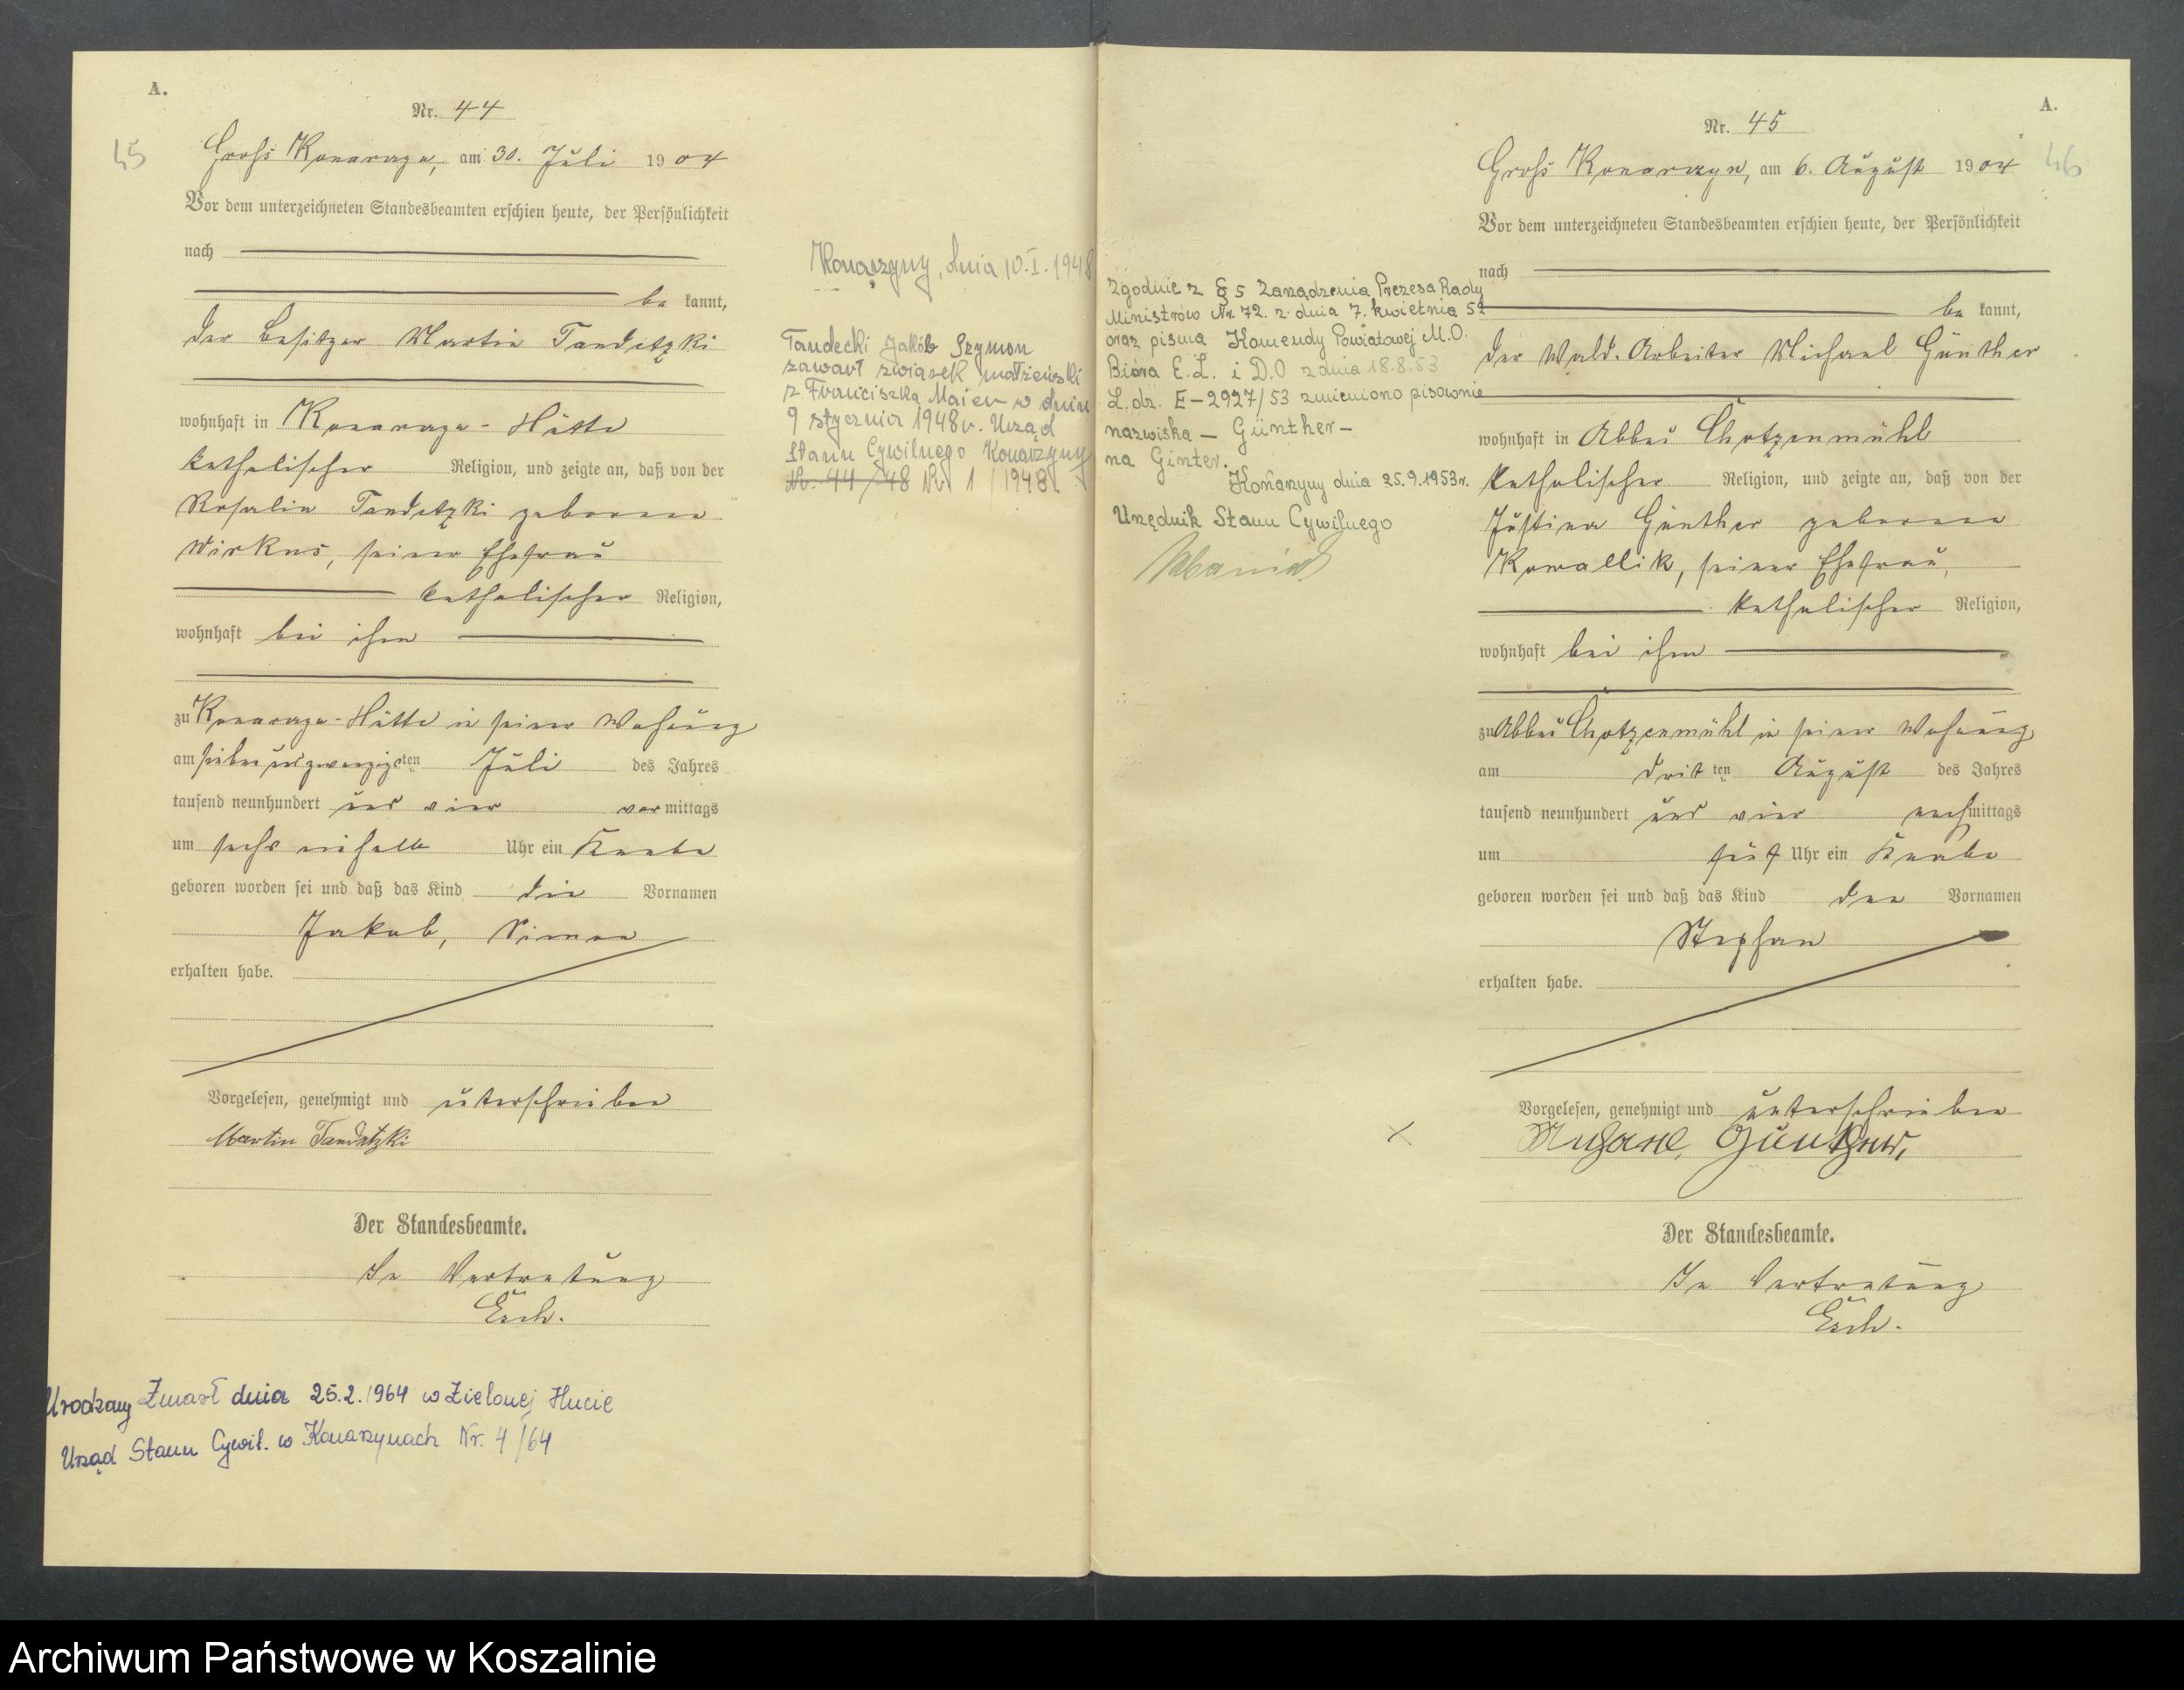 A.
Nr. 44
45
Gross Konarzyn, am 30. Juli 1904
Vor dem unterzeichneten Standesbeamten erschien heute, der Persönlichkeit
nach
be kannt,
der Besitzer Martin Tandetzki
wohnhaft in Konarzyn-Hütte
katholischer Religion, und zeigte an, daß von der
Rosalia Tandetzki geborene
Wirkus, seiner Ehefrau
katholischer Religion,
wohnhaft bei ihm
zu Konarzyn-Hütte in seiner Wohnung
am siebenundzwanzigsten Juli des Jahres
tausend neunhundert und vier vormittags
um sechs einhalb Uhr ein Knabe
geboren worden sei und daß das Kind die Vornamen
Jakob, Simon
erhalten habe.
Vorgelesen, genehmigt und unterschrieben
Martin Tandetzki
Der Standesbeamte.
In Vertretung
Esch.
Urodzony Zmarł dnia 25.2.1964 w Zielonej Hucie
Urząd Stanu Cywil. w Konarzynach Nr. 4/64
Konarzyny, dnia 10.I.1948
Tandecki Jakób Szymon
zawarł związek małżeński
z Franciszką Maier w dniu
9 stycznia 1948 r. Urząd
Stanu Cywilnego Konarzyny
Nr. 44/48 Nr 1/1948.
Zgodnie z § 5 Zarządzenia Prezesa Rady
Ministrów Nr. 72. z dnia 7. kwietnia 52
oraz pisma Komendy Powiatowej M.O.
Biura E.L. i D.O z dnia 18.8.53
L.dz. E-2927/53 zmieniono pisownię
nazwiska – Günther –
na Ginter.
Konarzyny dnia 25.9.1953 r.
Urzędnik Stanu Cywilnego
A.
Nr. 45
46
Gross Konarzyn, am 6. August 1904
Vor dem unterzeichneten Standesbeamten erschien heute, der Persönlichkeit
nach
be kannt,
der Wald-Arbeiter Michael Günther
wohnhaft in Abbau Chotzenmühl
katholischer Religion, und zeigte an, daß von der
Justina Günther geborene
Kowallik, seiner Ehefrau,
katholischer Religion,
wohnhaft bei ihm
zu Abbau Chotzenmühl in seiner Wohnung
am dritten August des Jahres
tausend neunhundert und vier nachmittags
um fünf Uhr ein Knabe
geboren worden sei und daß das Kind den Vornamen
Stephan
erhalten habe.
Vorgelesen, genehmigt und unterschrieben
Michael Günther,
Der Standesbeamte.
In Vertretung
Esch.
Archiwum Państwowe w Koszalinie